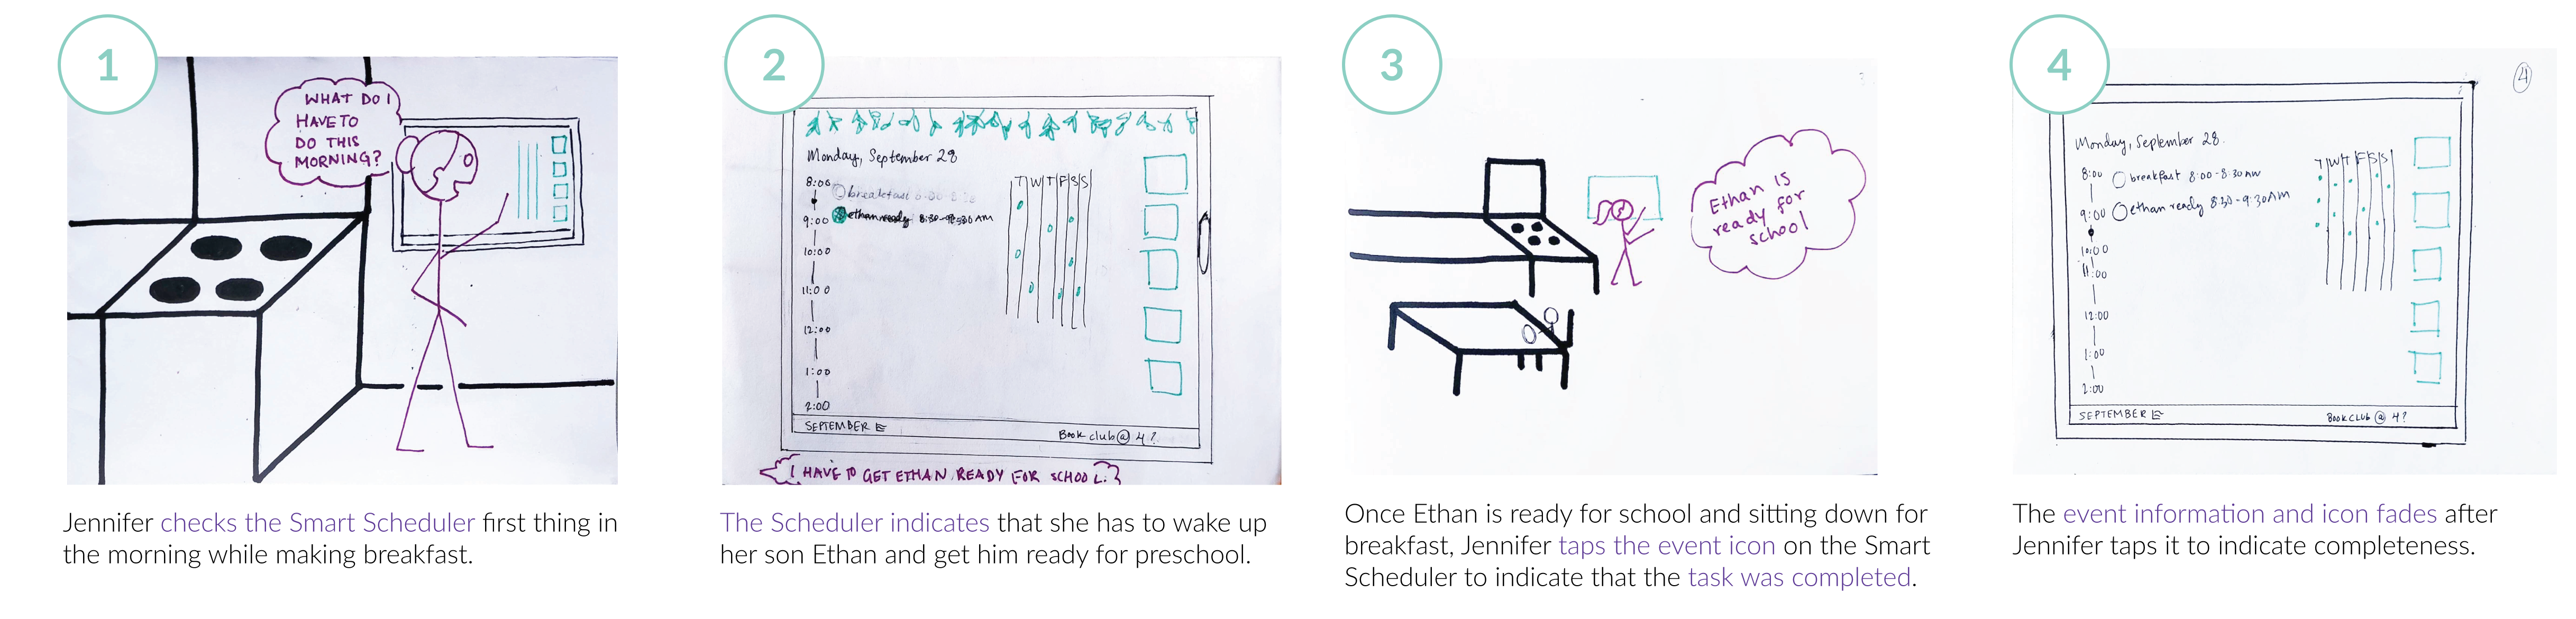 1
WHAT DO I
HAVE TO
DO THIS
MORNING?
Jennifer checks the Smart Scheduler first thing in
the morning while making breakfast.
2
Monday, September 28
T W T F S S
8:00
breakfast
9:00
ethan ready 8:30-9:30 AM
10:00
11:00
12:00
1:00
2:00
SEPTEMBER
Book club @ 4?
I HAVE TO GET ETHAN READY FOR SCHOOL.
The Scheduler indicates that she has to wake up
her son Ethan and get him ready for preschool.
3
Ethan is
ready for
school
Once Ethan is ready for school and sitting down for
breakfast, Jennifer taps the event icon on the Smart
Scheduler to indicate that the task was completed.
4
4
Monday, September 28.
T W T F S S
8:00 breakfast 8:00-8:30 AM
9:00 ethan ready 8:30-9:30AM
10:00
11:00
12:00
1:00
2:00
SEPTEMBER
BOOK CLUB @ 4?
The event information and icon fades after
Jennifer taps it to indicate completeness.